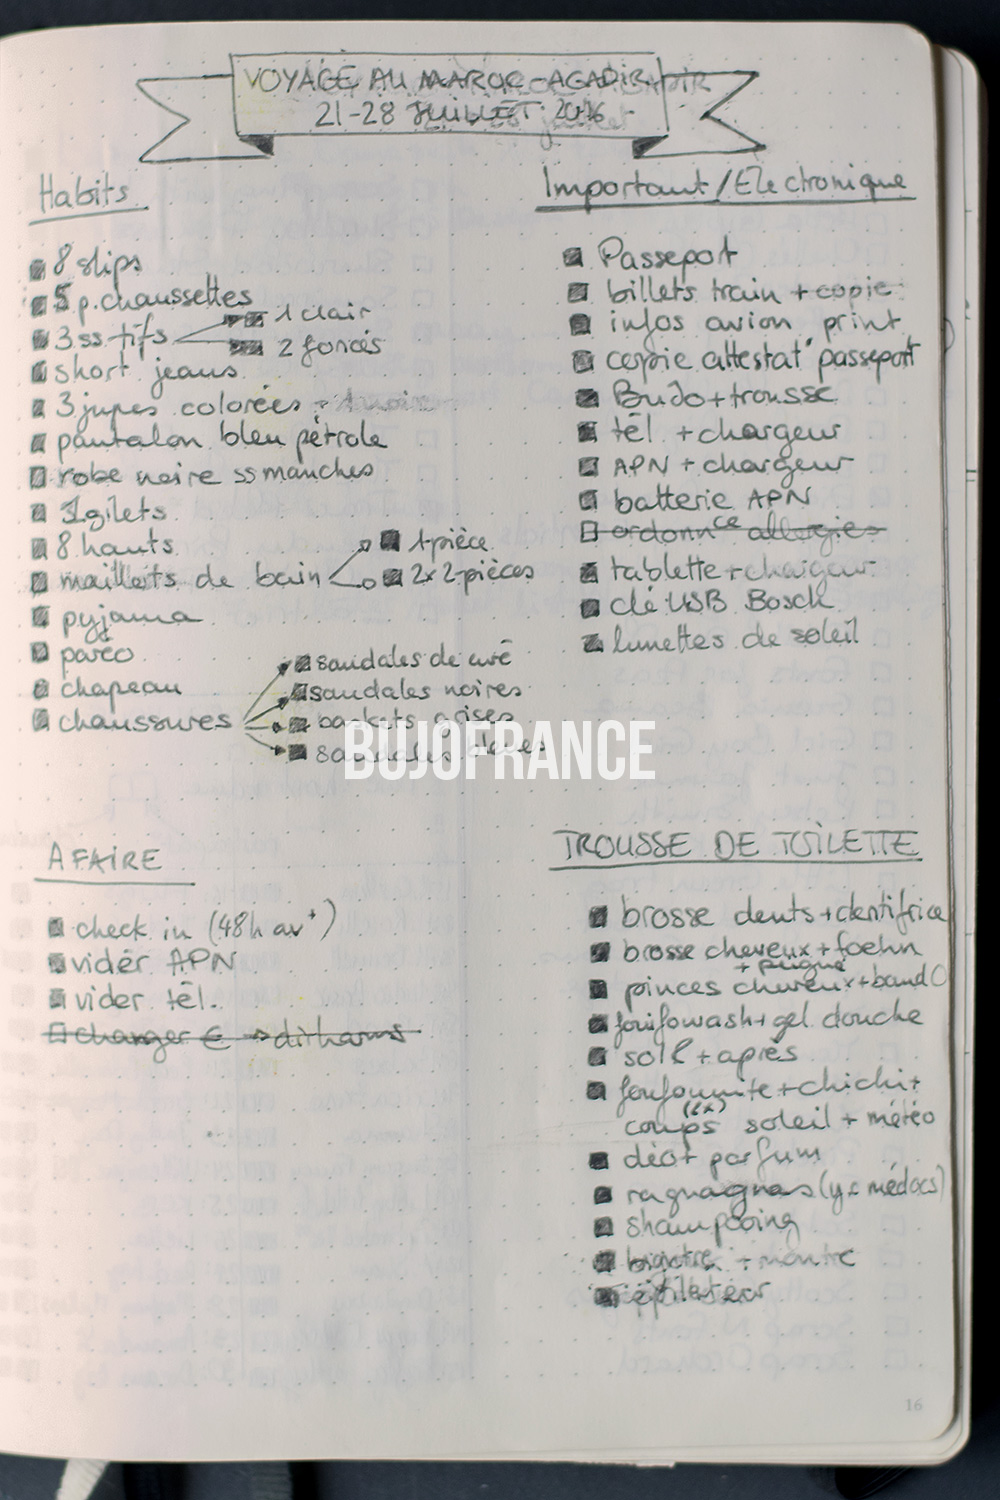 VOYAGE AU MAROC - AGADIR
21-28 JUILLET 2016
Habits
8 slips
5 p. chaussettes
3 ss-tifs
1 clair
2 foncés
short jeans
3 jupes colorées
pantalon bleu pétrole
robe noire ss manches
gilets
8 hauts
maillots de bain
1 pièce
2x 2-pièces
pyjama
paréo
chapeau
chaussures
sandales de
sandales noires
baskets grises
sandales
Important / Electronique
Passeport
billets train + copie
infos avion print
copie attestat° passeport
BuJo + trousse
tél + chargeur
APN + chargeur
batterie APN
ordonnce allergies
tablette + chargeur
clé USB Bosch
lunettes de soleil
BUJOFRANCE
A FAIRE
check in (48h avt)
vider APN
vider tél.
changer € → dirhams
TROUSSE DE TOILETTE
brosse dents + dentifrice
brosse cheveux + foehn
+ peigne
pinces cheveux + band
foufowash + gel douche
sol + après
foufounite + chichi +
coups (2x) soleil + météo
déo + parfum
ragnagnas (y.c médocs)
shampooing
+ montre
épilateur
16